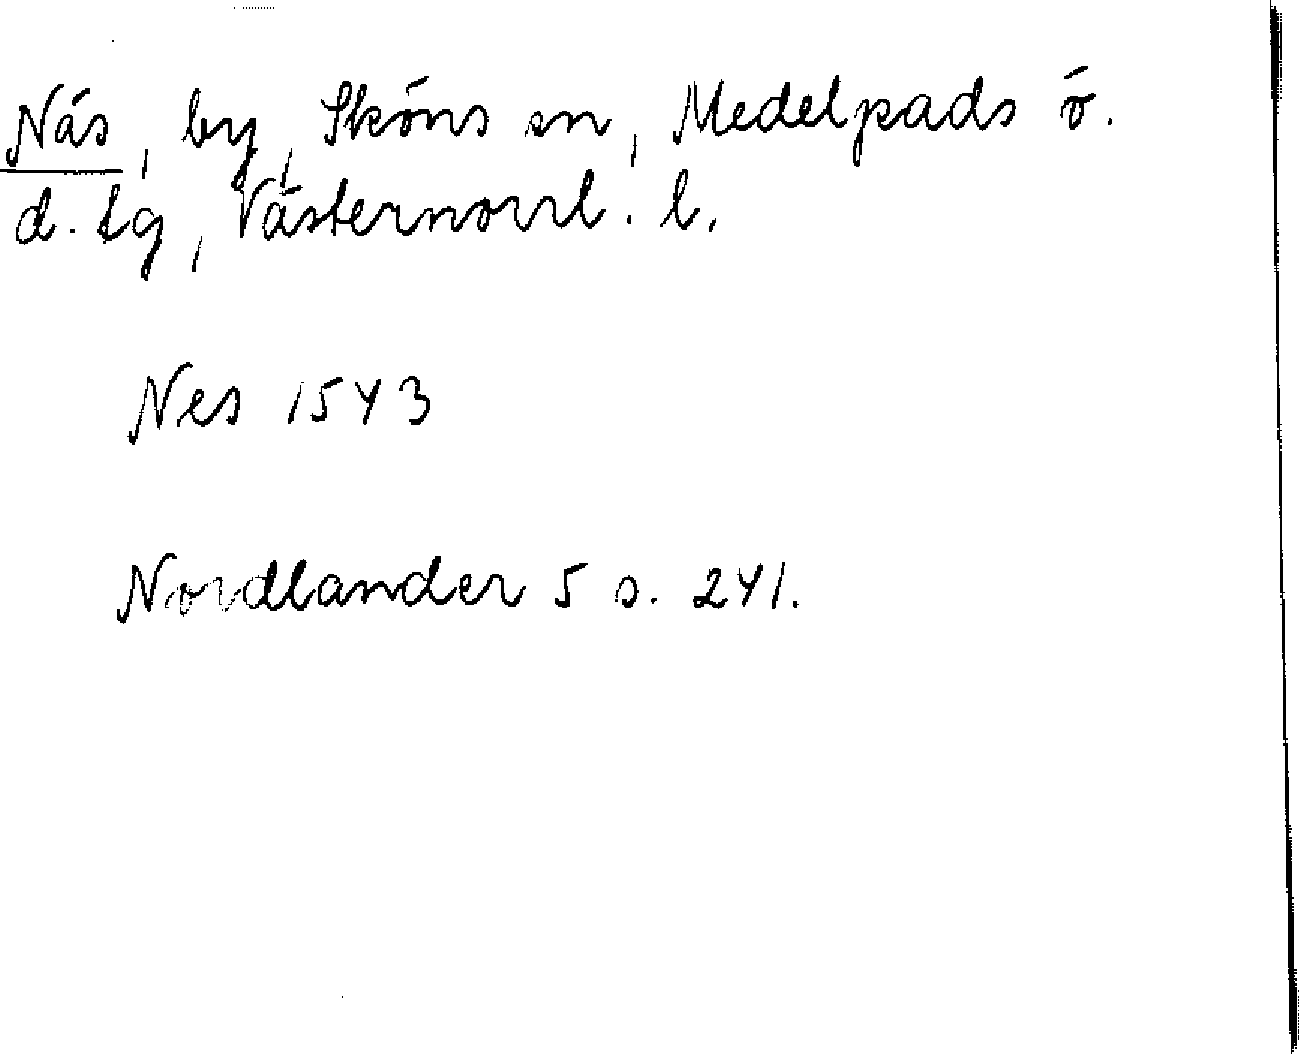 Näs, by, Sköns sn, Medelpads ö.
d. tg, Västernorrl. l.
Nes 1543
Nordlander 5 s. 241.